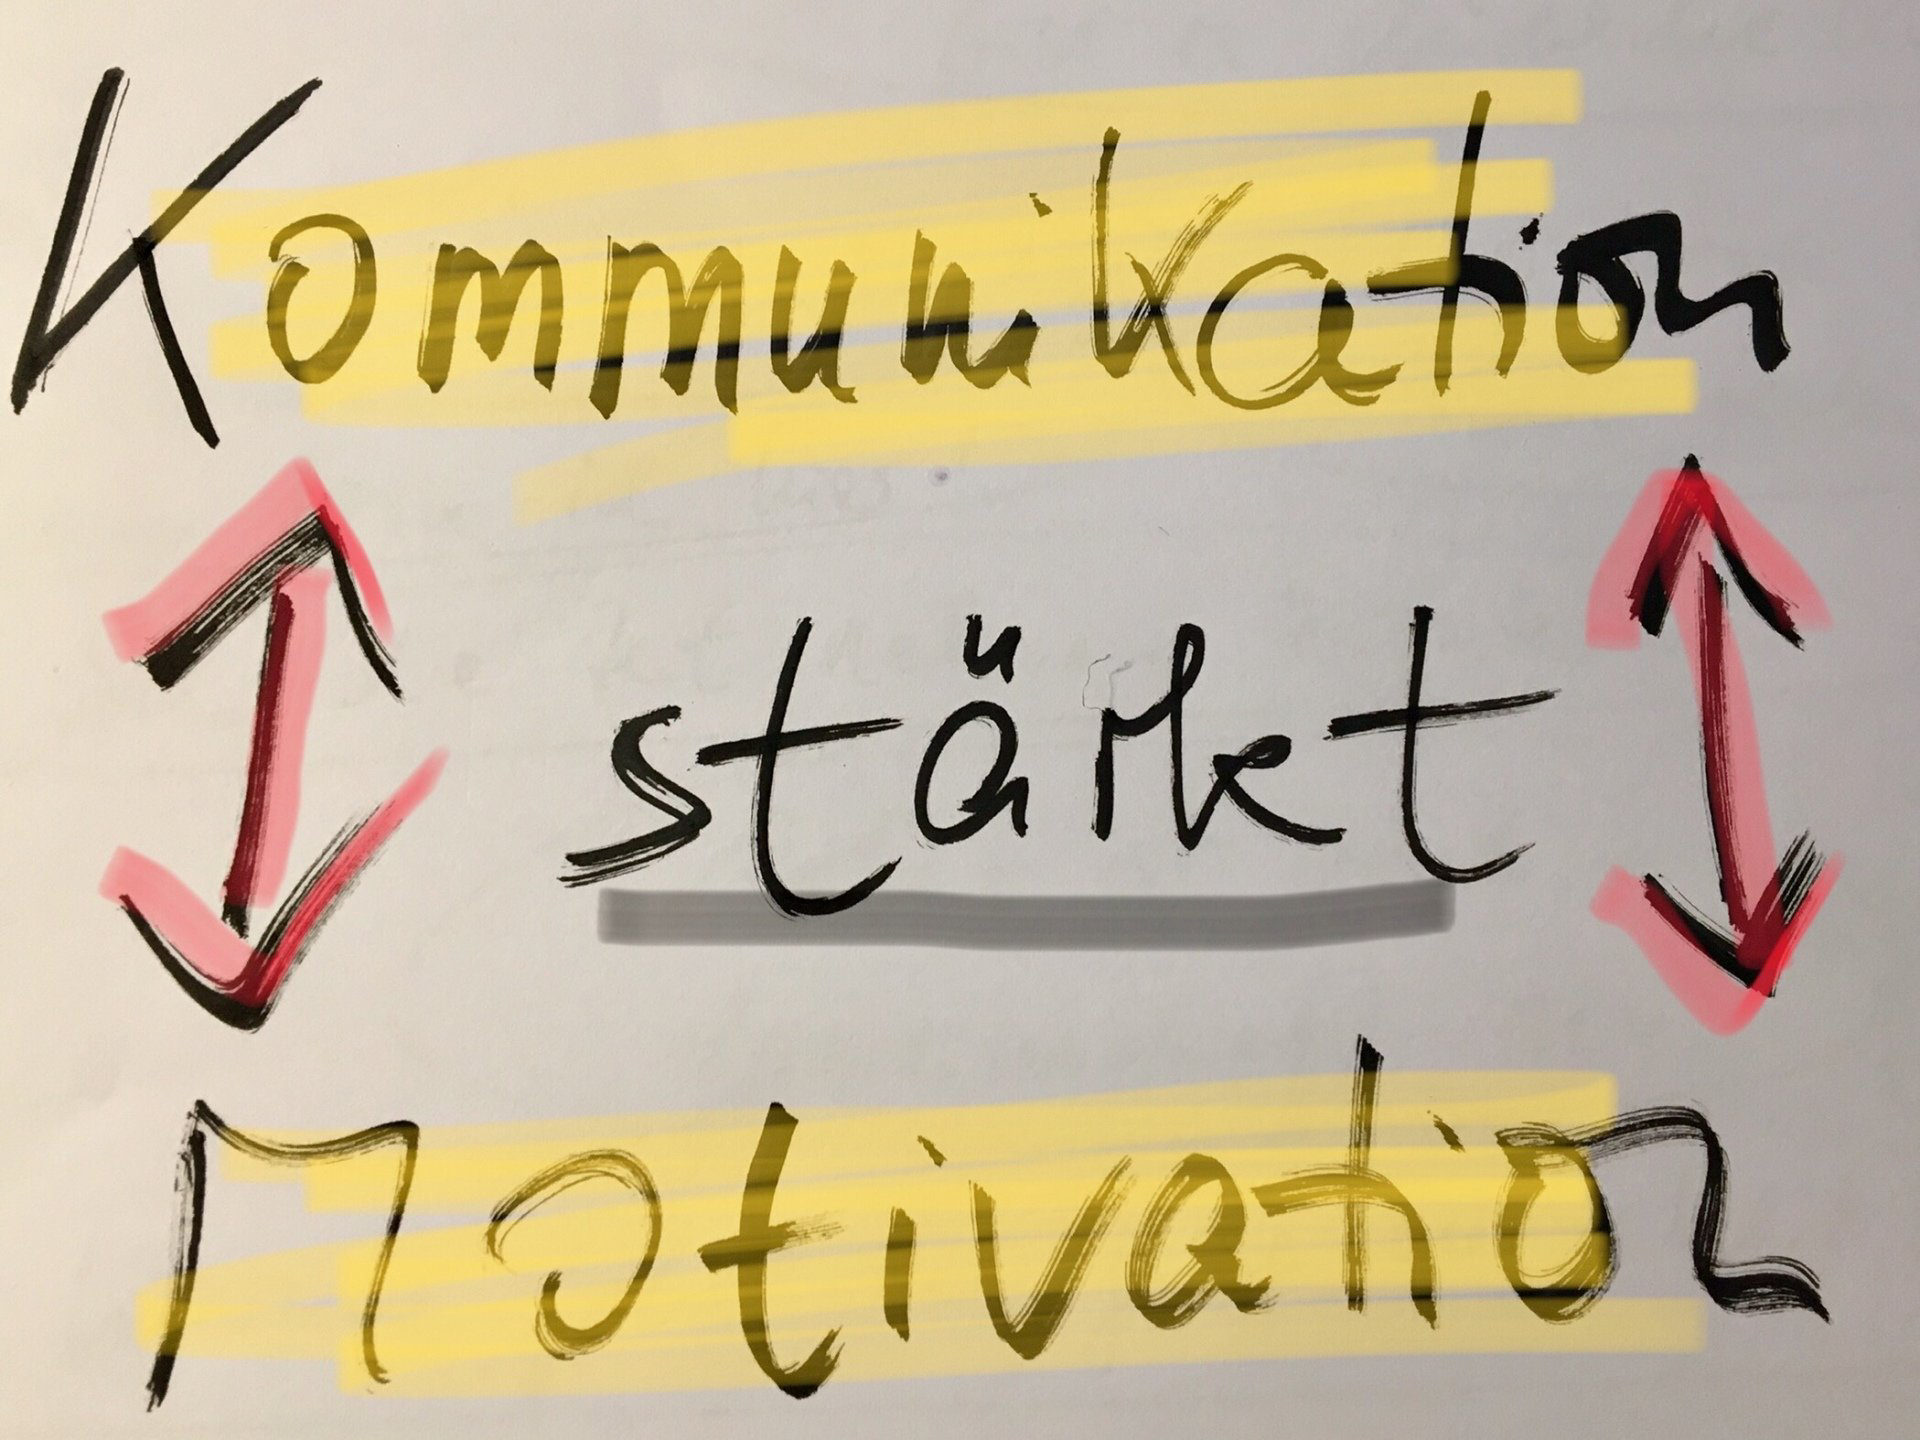 Kommunikation
stärkt
Motivation